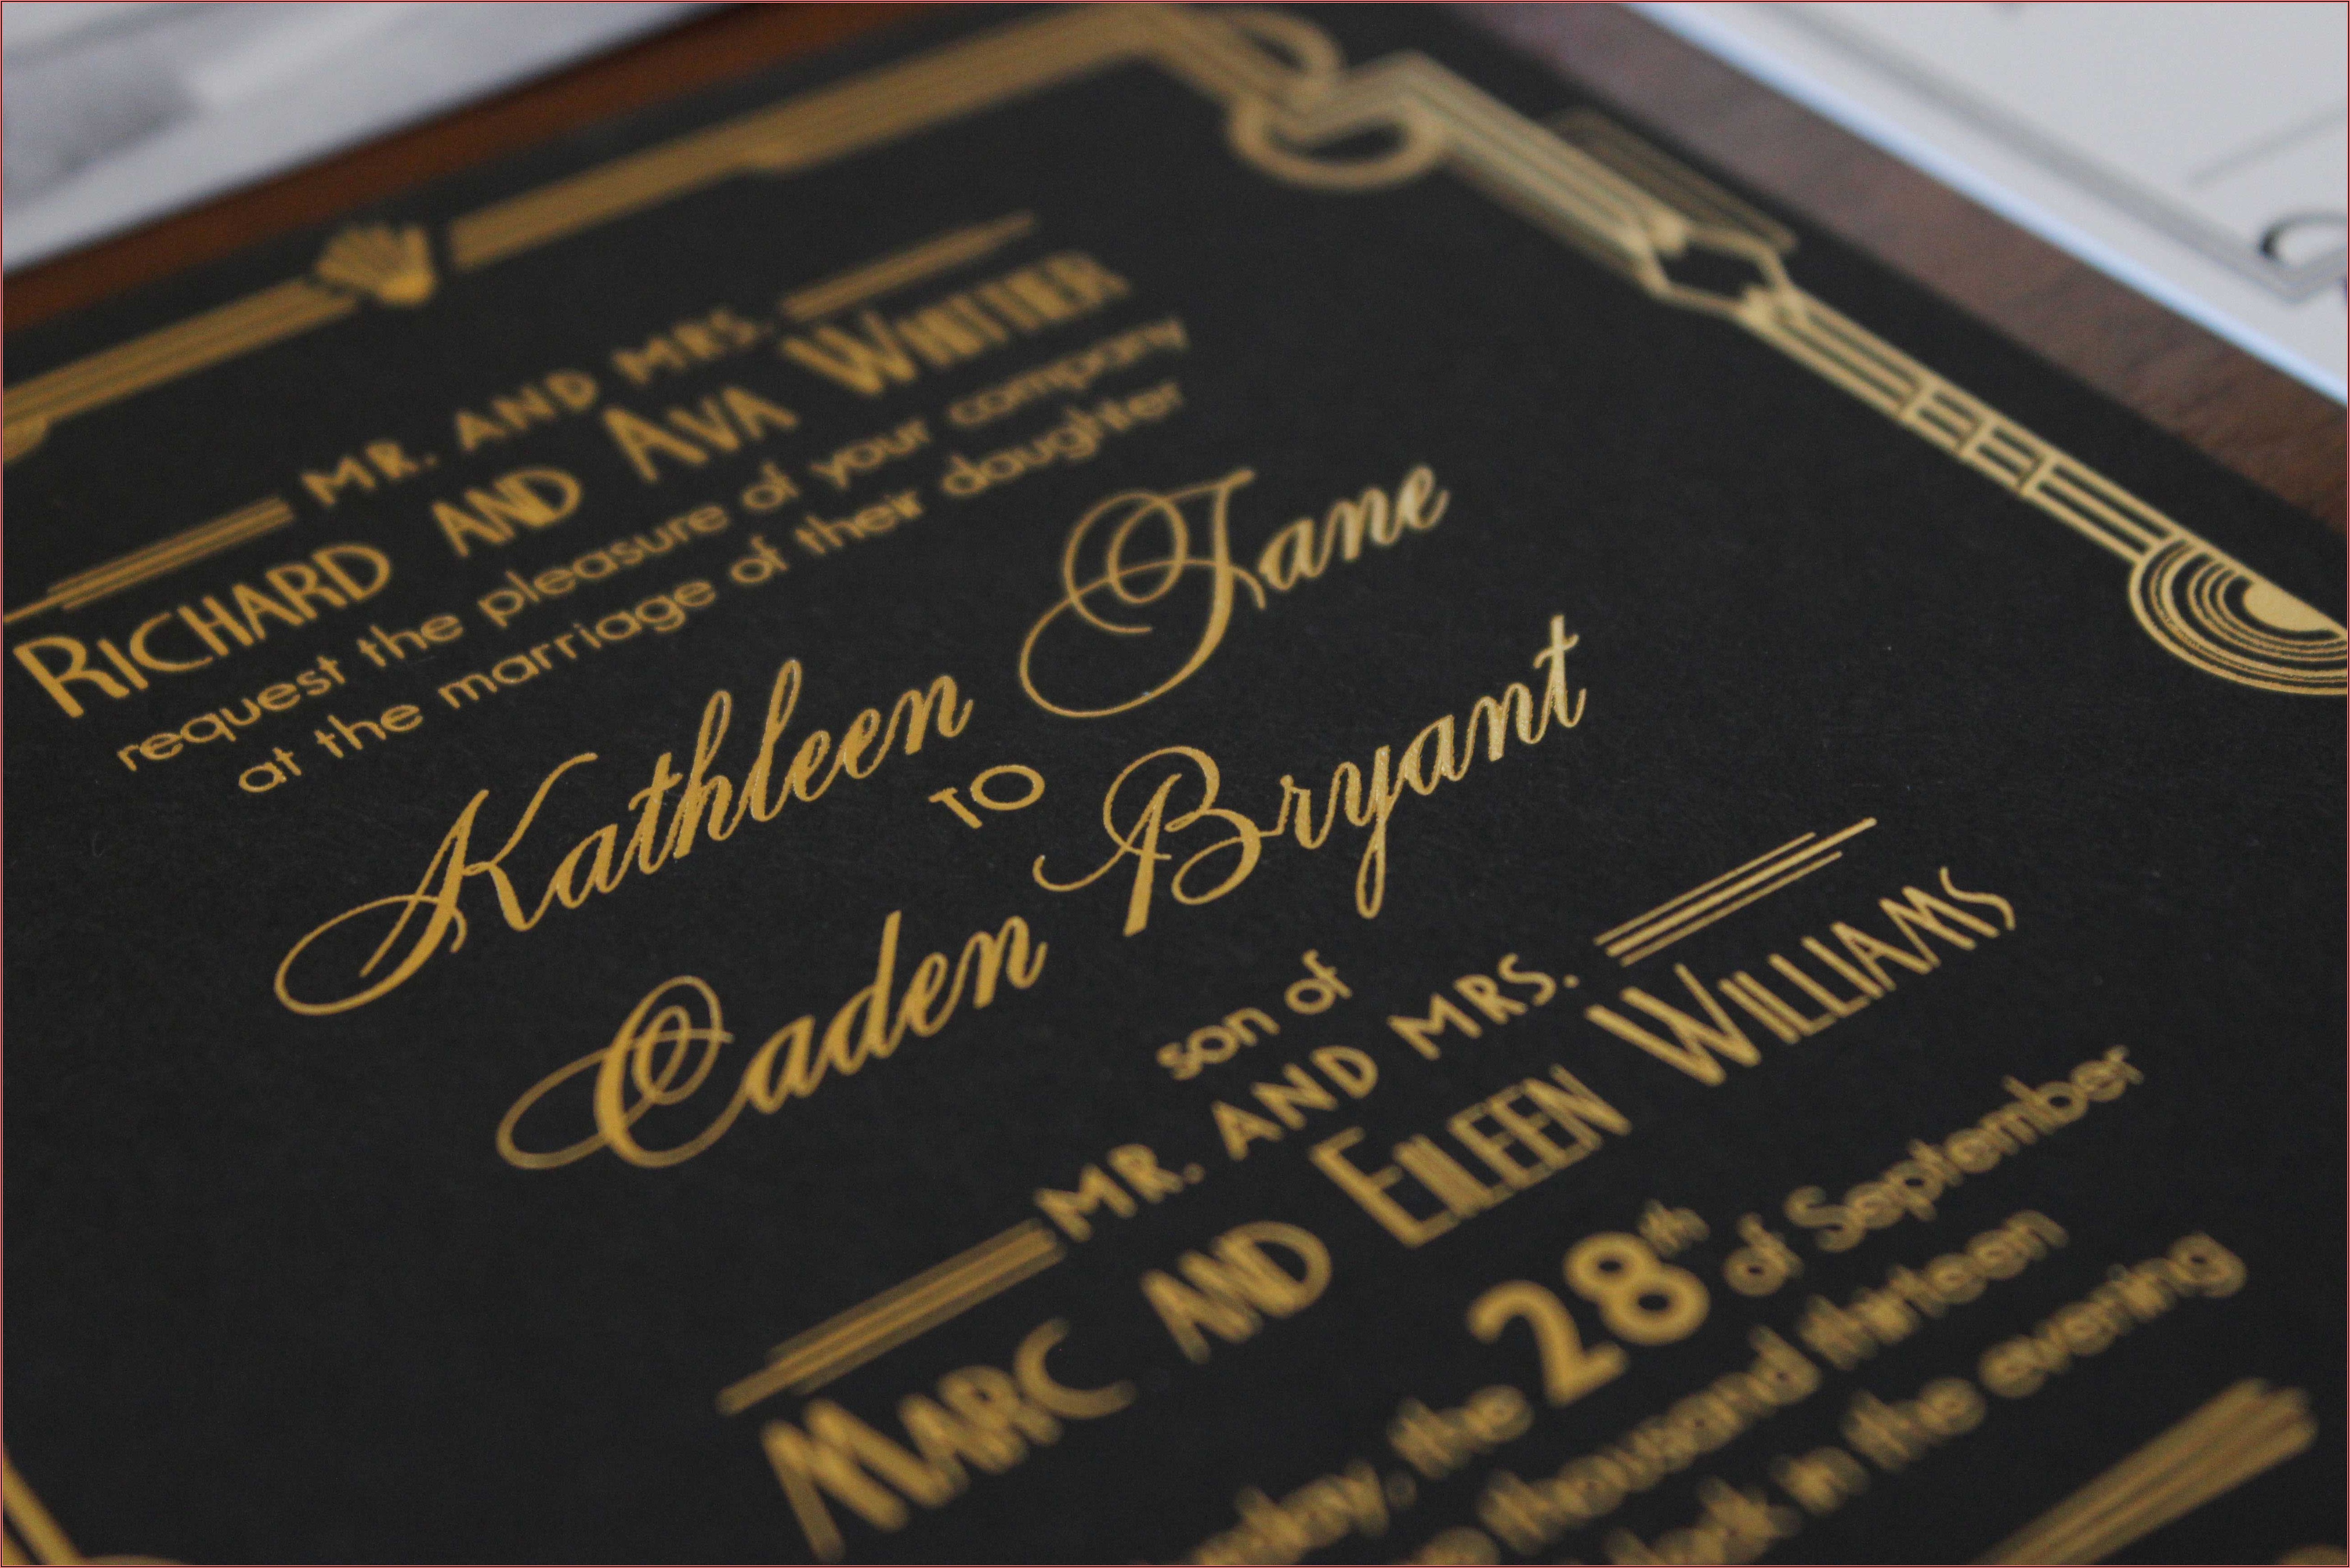 MR. AND MRS.
RICHARD AND AVA WHITTIER
request the pleasure of your company
at the marriage of their daughter
Kathleen Jane
TO
Caden Bryant
son of
MR. AND MRS.
MARC AND EILEEN WILLIAMS
the 28th of September
thousand thirteen
in the evening